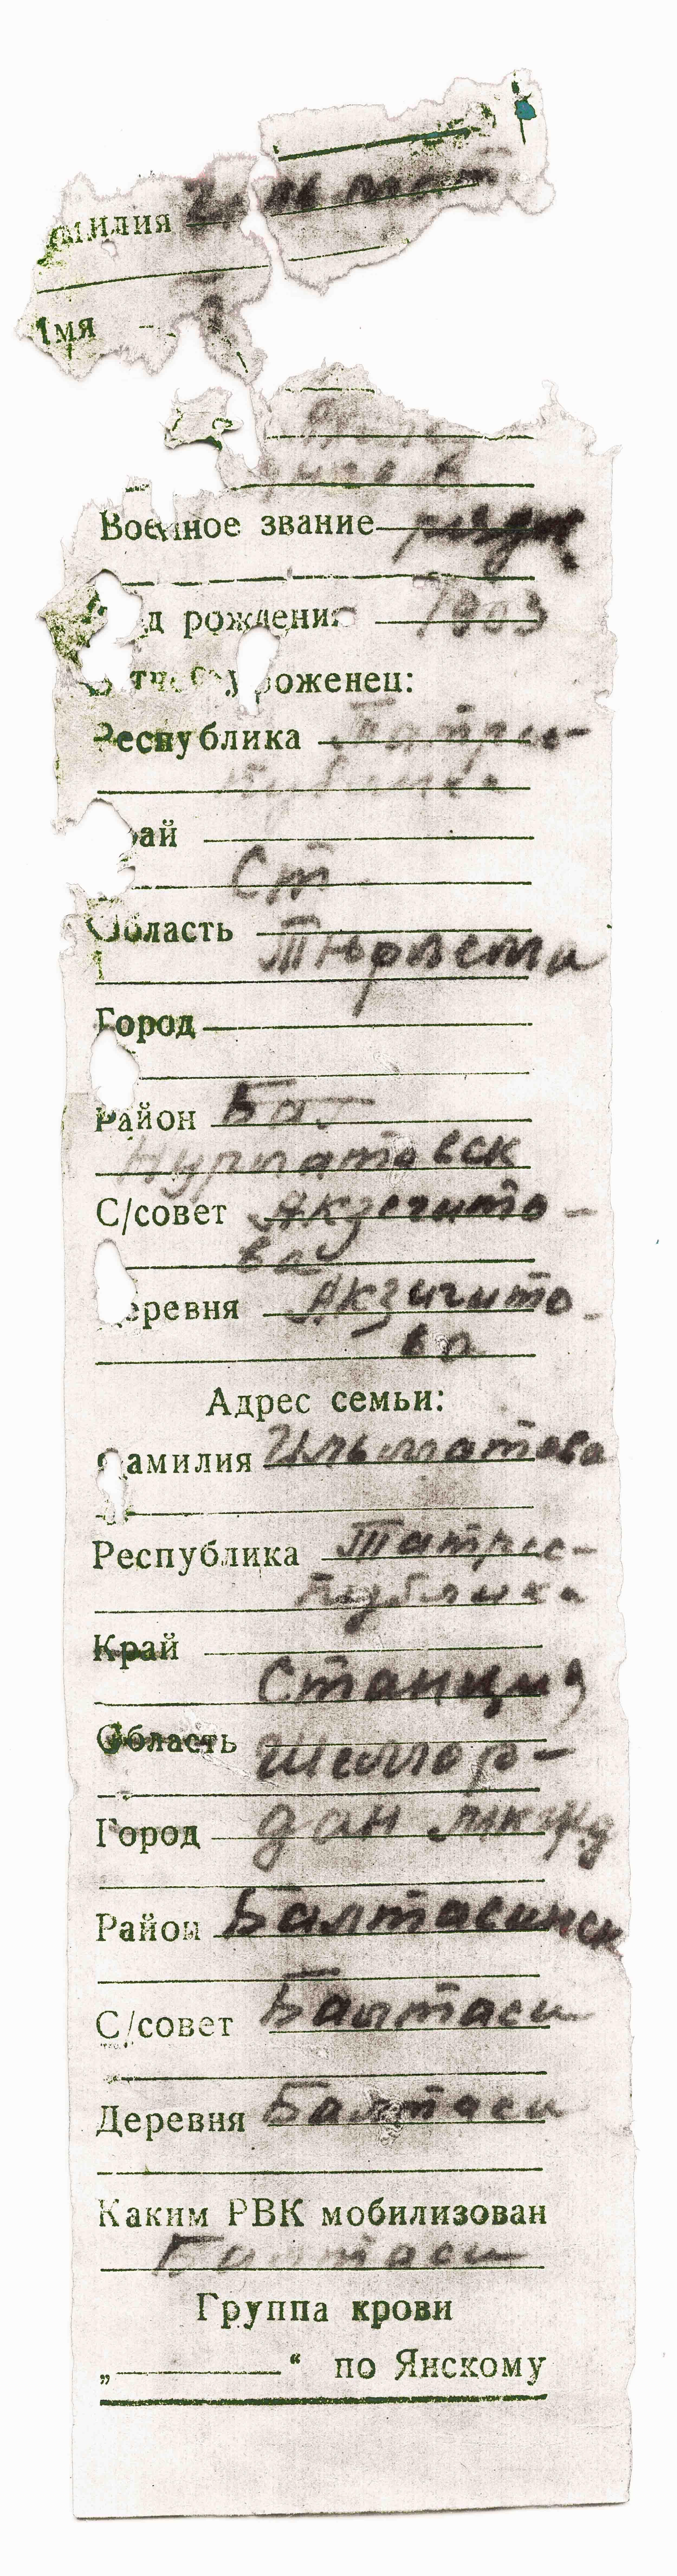 амилия Ильмат
Имя
Военное звание рядов
од рождения 1903
уроженец:
Республика Татрес-
публика
рай
Ст
Область Тюрлема
Город
Район Баг
Нурлатовск
С/совет Акзегито-
ва
еревня Акзигито-
во
Адрес семьи:
амилия Ильматова
Республика Татрес-
публика
Край
Станция
Область Шемор-
Город дан
Район Балтасинск
С/совет Балтаси
Деревня Балтаси
Каким РВК мобилизован
Балтаси
Группа крови
„ “ по Янскому